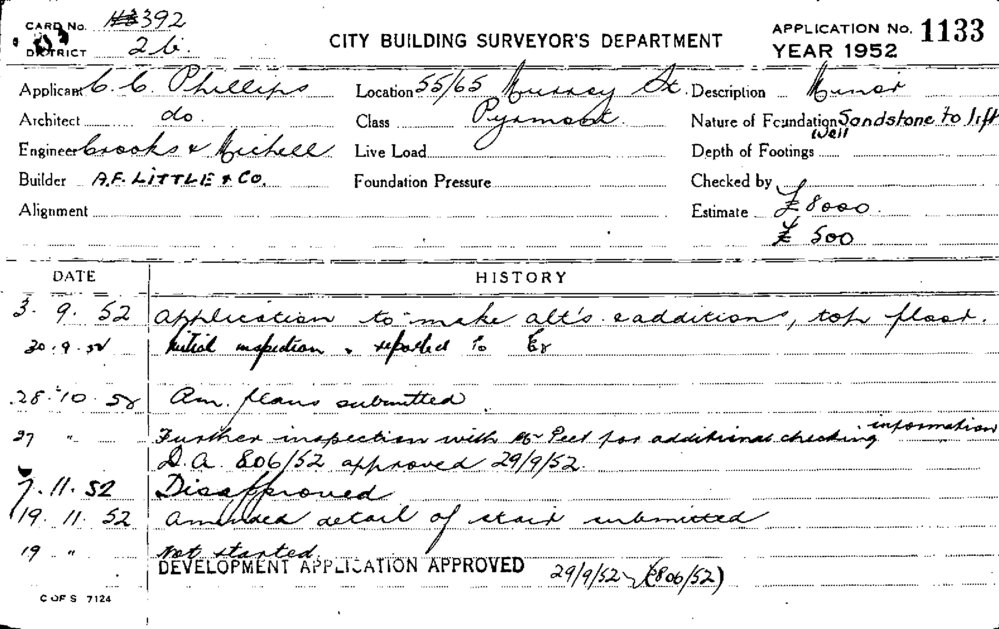 CARD No. 392
DISTRICT 2b. CITY BUILDING SURVEYOR'S DEPARTMENT APPLICATION No. 1133
YEAR 1952
Applicant C. C. Phillips Location 55/65 Murray St. Description Minor
Architect do. Class Pyrmont. Nature of Foundation Sandstone to lift well
Engineer Crooks & Michell Live Load Depth of Footings
Builder A.F. LITTLE & CO. Foundation Pressure Checked by
Alignment Estimate £ 8000.
£ 500
DATE HISTORY
3. 9. 52 Application to make alt's. & additions, top floor.
30.9.52 Initial inspection & reported to
28.10.52 Am. plans submitted
27 " Further inspection with Mr Peet for additional checking information
D.A. 806/52 approved 29/9/52.
7.11.52 Disapproved
19.11.52 Amended detail of stair submitted
19 " Not started.
DEVELOPMENT APPLICATION APPROVED 29/9/52 (806/52)
C OF S 7124